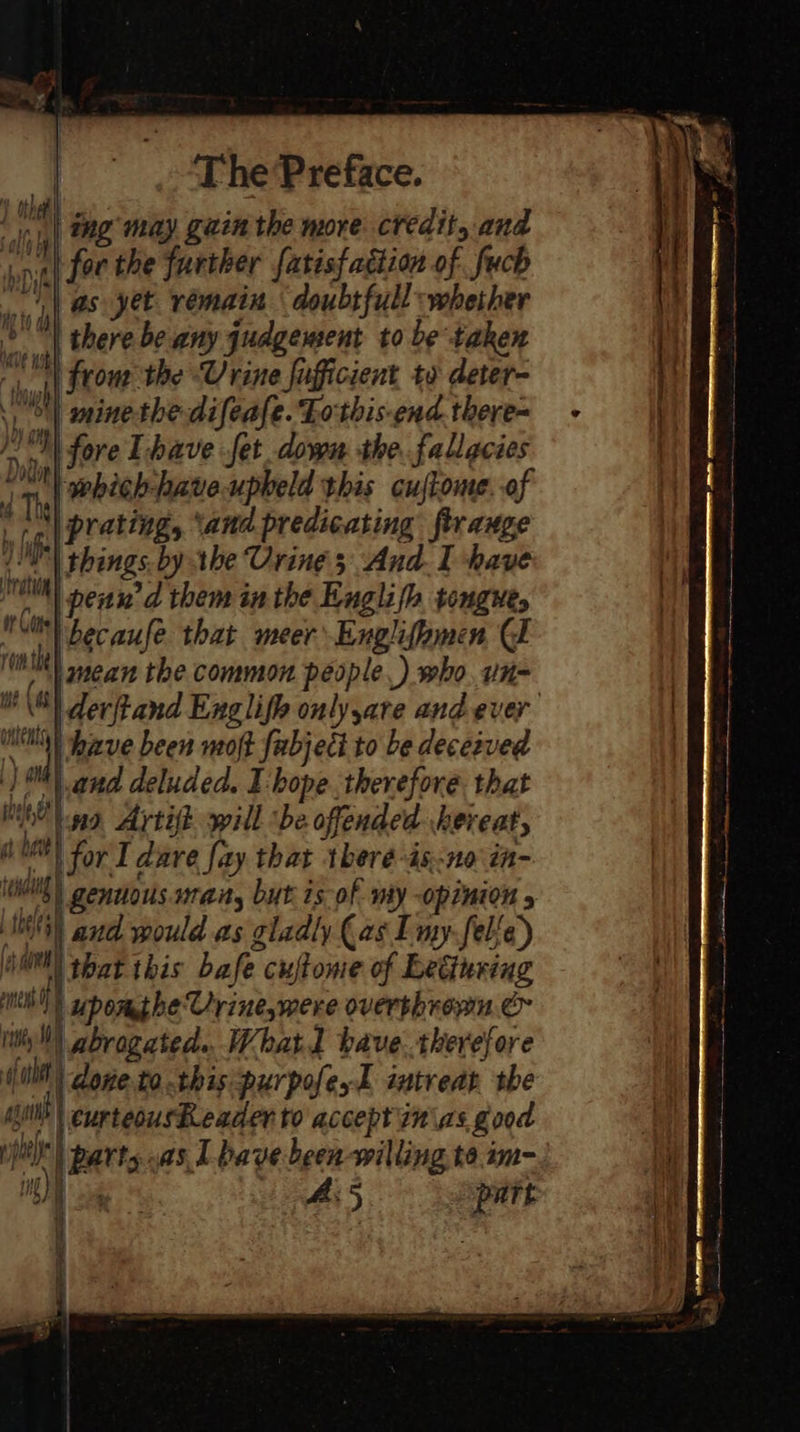 The Preface.
ing may gain the more credit, and
for the further ſatisfaction of ſuch
as yet remain doubtfull whether
there be any judgement to be taken
from the Urine ſufficient to deter-
mine the diſeaſe. To this end there-
fore I have ſet down the fallacies
which have upheld this cuſtome of
prating, and predicating ſtrange
things by the Urine; And I have
penn'd them in the Engliſh tongue,
becauſe that meer Engliſhmen (I
mean the common people) who un-
derſtand Engliſh only, are and ever
have been moſt ſubject to be deceived
and deluded. I hope therefore that
no Artiſt will be offended hereat,
for I dare ſay that there is no in-
genuous man, but is of my opinion,
and would as gladly (as I my ſelfe)
that this baſe cuſtome of Lecturing
upon the Urine, were overthrown &
abrogated. What I have therefore
done to this purpoſe, I intreat the
curteous Reader to accept in as good
part, as I have been willing to im-
A 5 part